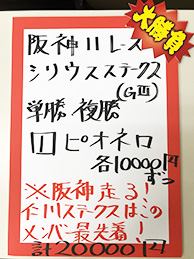 大勝負
阪神11レース
シリウスステークス
(GⅢ)
単勝 複勝
1 ピオネロ
各10000円
ずつ
※阪神走る!
仁川ステークスはこの
メンバー最先着!
計20000円